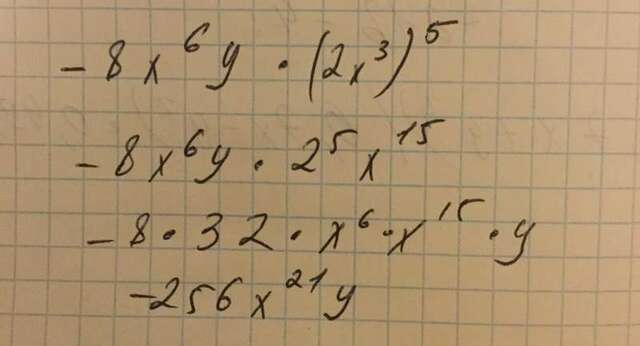 -8x⁶y · (2x³)⁵
-8x⁶y · 2⁵x¹⁵
-8 · 32 · x⁶ · x¹⁵ · y
-256x²¹y